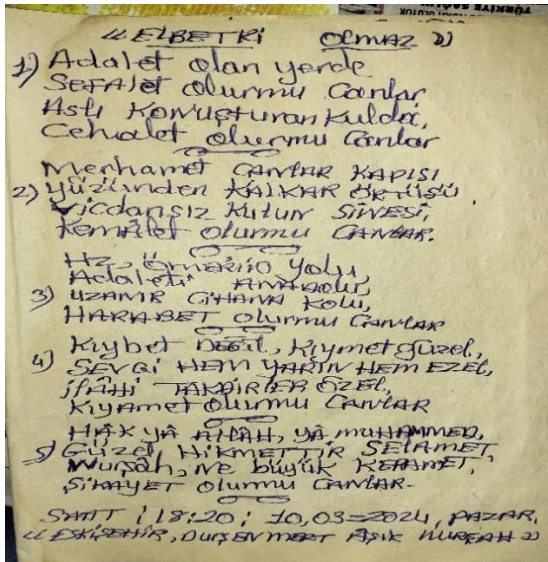 TÜRKİYE SAĞLIK
"ELBETKİ OLMAZ"
1) Adalet olan yerde
Sefalet olurmu Canlar
Aslı Konuşturan Kulda,
Cehalet olurmu Canlar
Merhamet CANLAR KAPISI
2) yüzünden KALKAR ÖRTÜSÜ
Vicdansız Kulun SİNESİ,
Kemâlet olurmu CANLAR.
Hz. Ömerino Yolu,
Adaleti ANADOLU,
3) UZANIR CİHANA KOLU,
HARABET olurmu CANLAR
4) Kıybet DEĞİL, Kıymet güzel,
SEVGİ HEM YARIN HEM EZEL,
İLÂHİ TAKDİRLER ÖZEL,
Kıyamet olurmu CANLAR
HAK YÂ ALLAH, YÂ MUHAMMED,
5) Güzel HİKMETTİR SELAMET,
Nurşâh, ne büyük KERAMET,
ŞİKAYET olurmu CANLAR.
SAAT ; 18:20 ; 10,03=2024, PAZAR,
"ESKİŞEHİR, DURSEN MERT ÂŞIK NURŞAH"